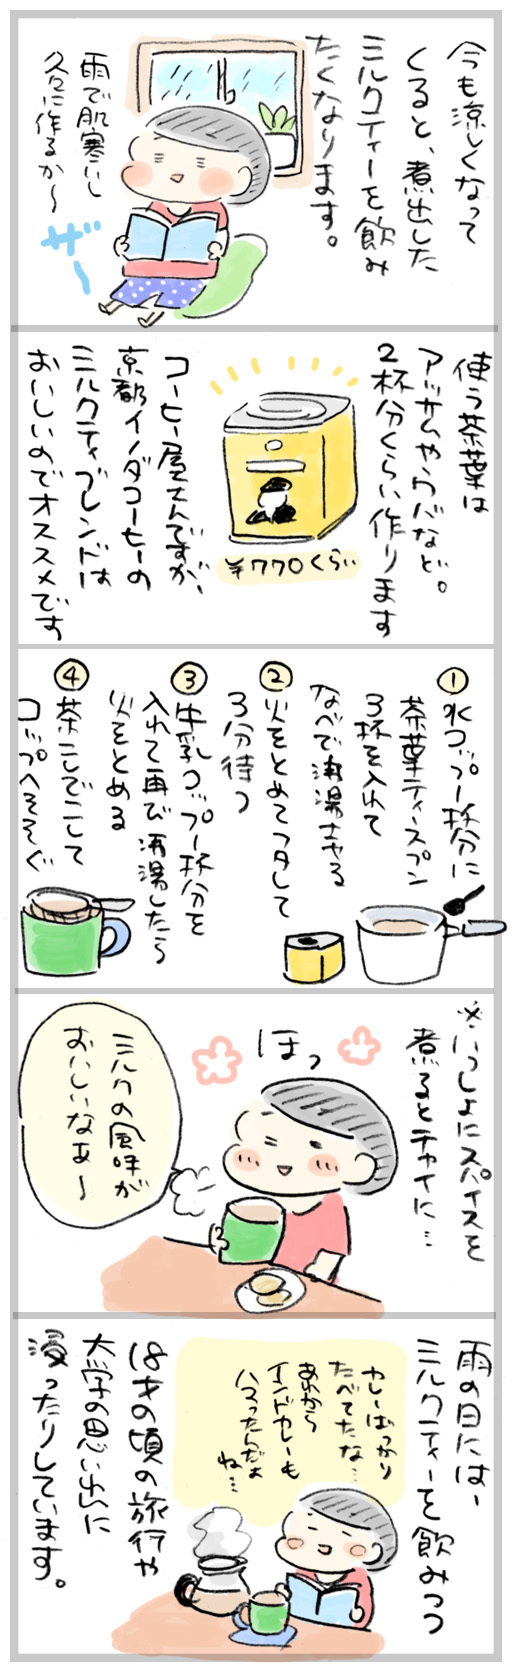 今も涼しくなって
くると、煮出した
ミルクティーを飲み
たくなります。
雨で肌寒いし
久々に作るか〜
ザー
使う茶葉は
アッサムやウバなど。
2杯分くらい作ります
¥770くらい
コーヒー屋さんですが、
京都イノダコーヒーの
ミルクティブレンドは
おいしいのでオススメです
①水コップ一杯分に
茶葉ティースプン
3杯を入れて
なべで沸湯させる
②火をとめてフタして
3分待つ
③牛乳コップ一杯分を
入れて再び沸湯したら
火をとめる
④茶こしでこして
コップへそそぐ
※いっしょにスパイスを
煮るとチャイに…
ほっ
ミルクの風味が
おいしいなあ〜
雨の日には、
ミルクティーを飲みつつ
カレーばっかり
たべてたな…
あれから
インドカレーも
ハマったんだよ
ね…
18才の頃の旅行や
大学の思い出に
浸ったりしています。